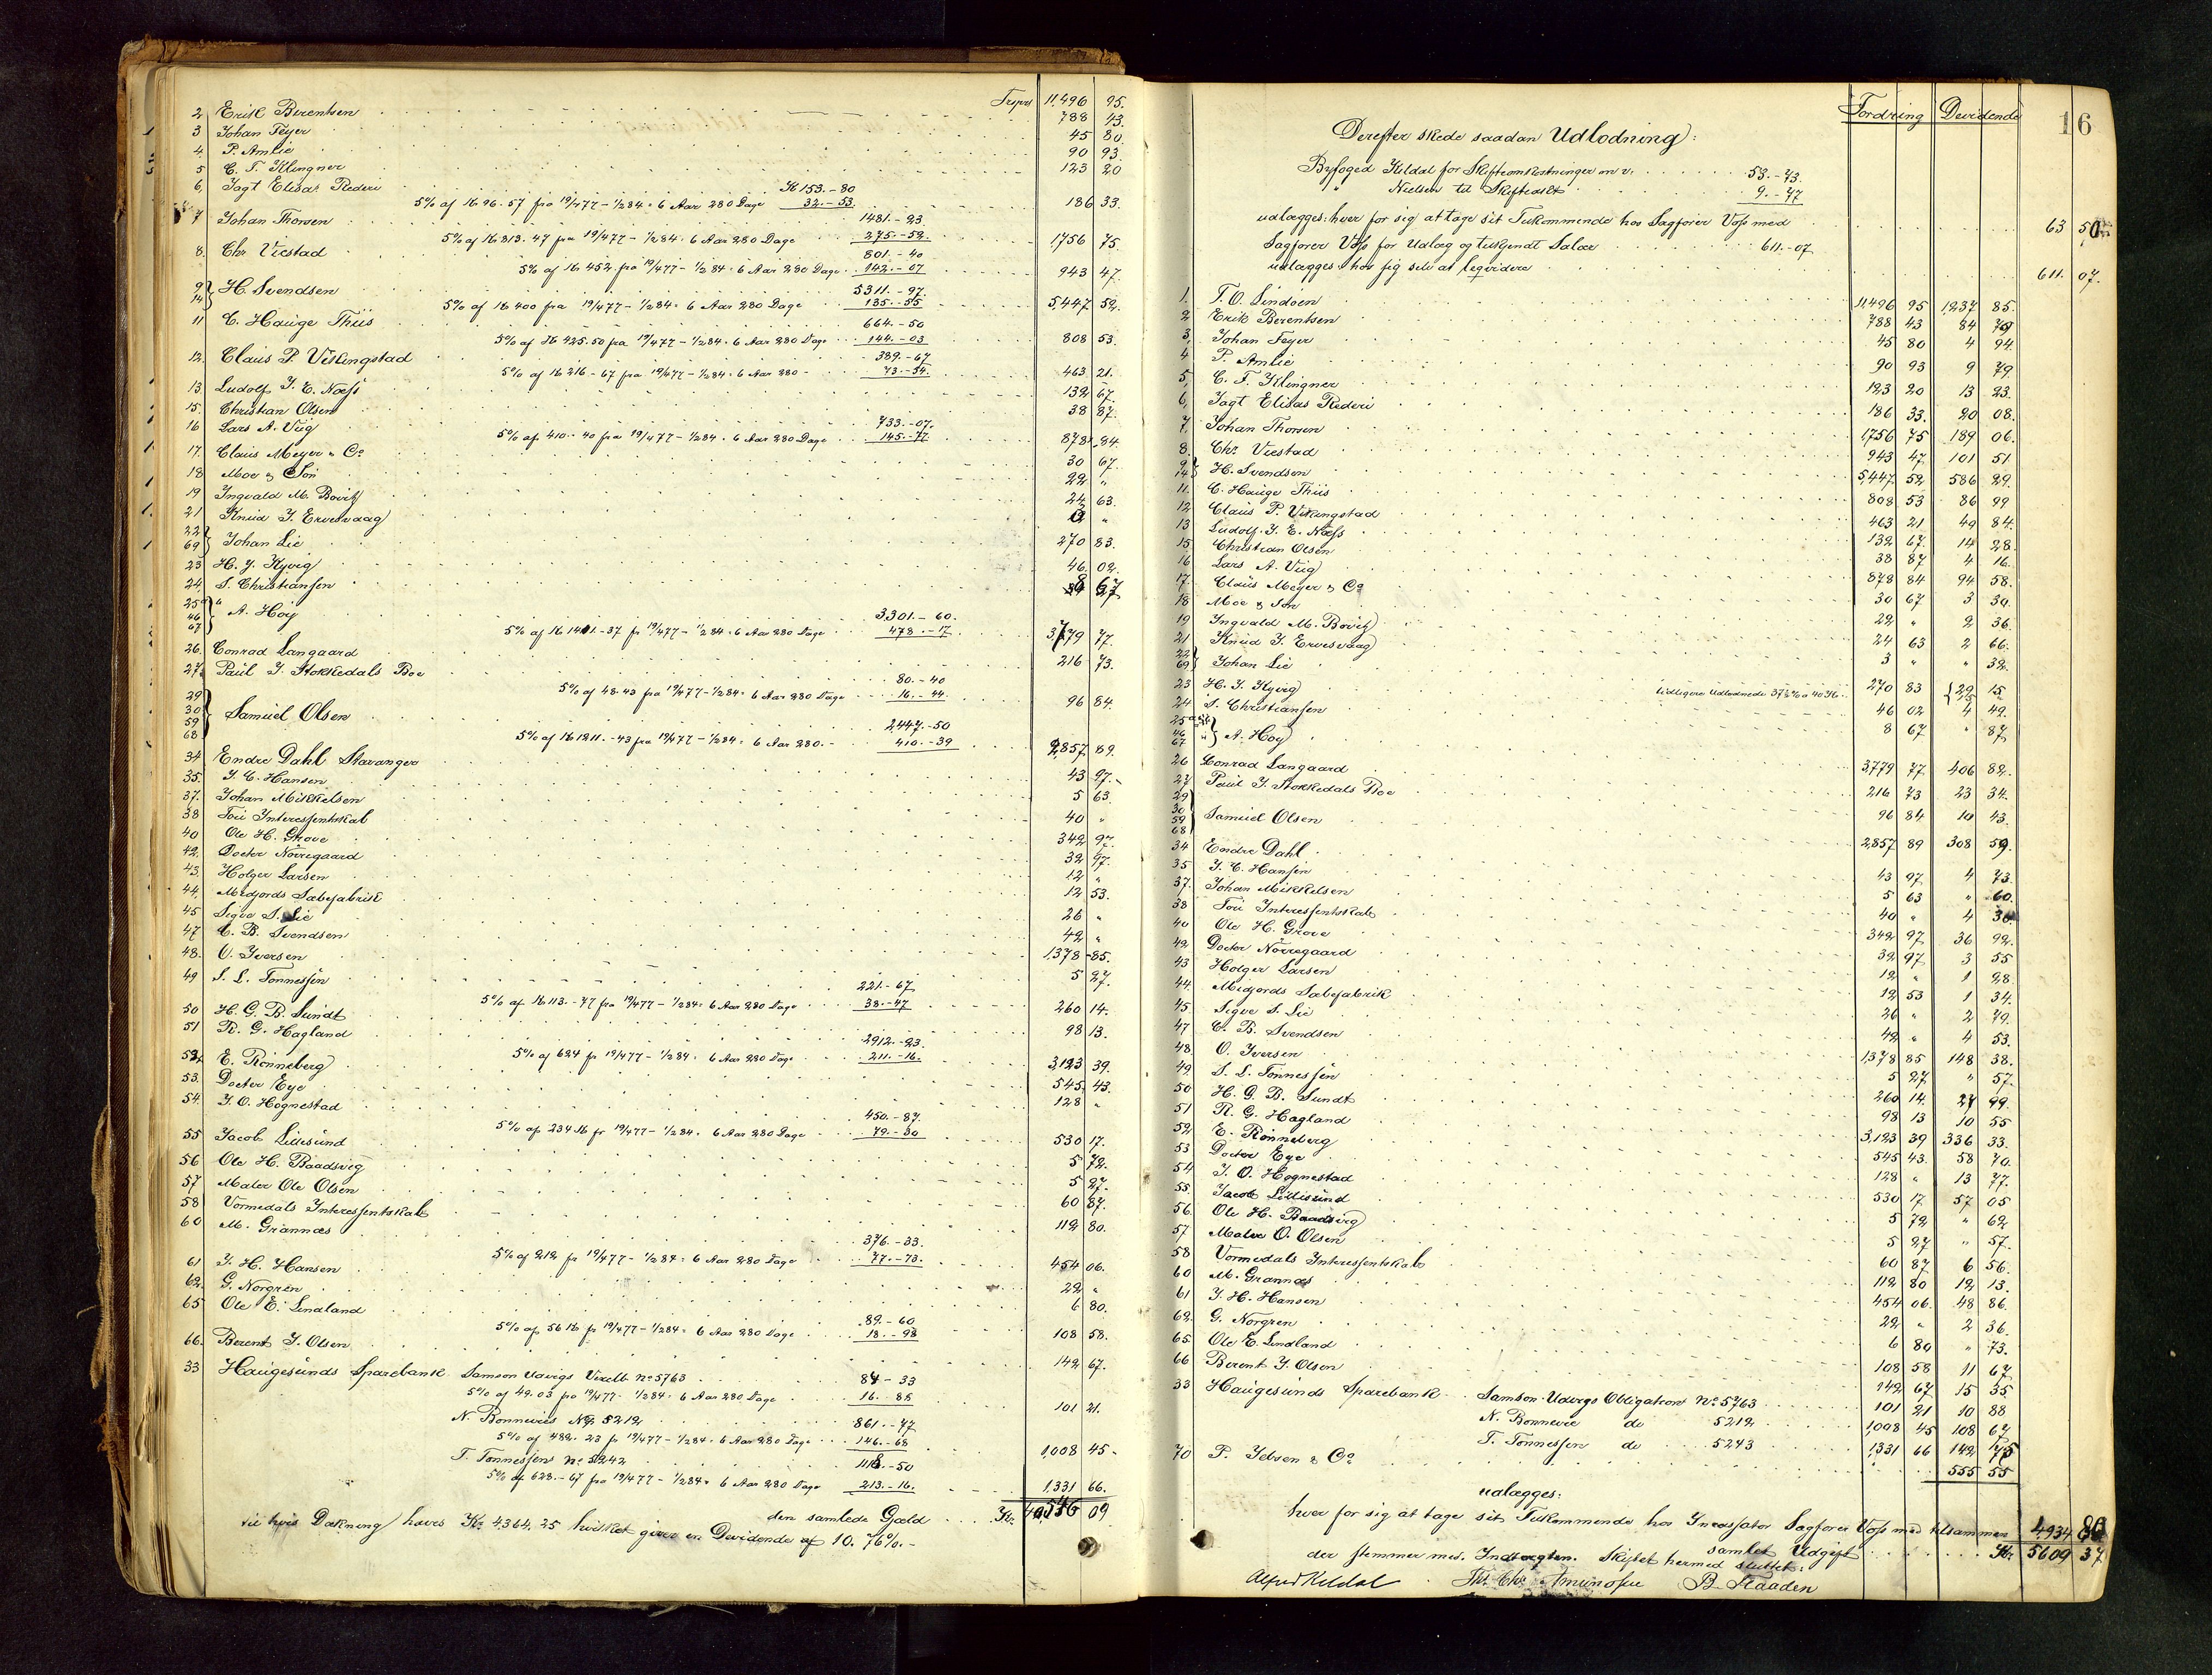 Trspt 11,496 95.
2 Erik Berentsen 788 43.
3 Johan Feyer 45 80
4. P. Amlie 90 93.
5 C. F. Klingner 123 20
6, Jagt Elisas Rederi K 153.-80
5% af K 96.57 fra 19/4 77 - 1/2 84 = 6 Aar 280 Dage 32.-53. 186 33.
7 Johan Thorsen 1481.-23
5% af K 813.47 fra 19/4 77 - 1/2 84 = 6 Aar 280 Dage 275.-52. 1,756 75.
8. Chr. Viestad 801.-40
5% af K 452 fra 19/4 77 - 1/2 84 = 6 Aar 280 Dage 142.-07 943 47.
9 14 H. Svendsen 5311.-97.
5% af K 400 fra 19/4 77 - 1/2 84 = 6 Aar 280 Dage 135.-55 5,447 52.
11 C. Hauge Thiis 664.-50
5% af K 425.50 fra 19/4 77 - 1/2 84 = 6 Aar 280 Dage 144.-03 808 53.
12. Claus P. Vikingstad 389.-67
5% af K 216-67 fra 19/4 77 - 1/2 84 = 6 Aar 280 - 73.-54. 463 21.
13. Ludolf J. E. Næss 132 67.
15. Christian Olsen 38 87.
16 Lars A. Viig 733.-07.
5% af 410.40 fra 19/4 77 - 1/2 84 = 6 Aar 280 Dage 145.-77 878 84.
17. Claus Meyer & Co 30 67.
18 Moe & Søn 22 "
19 Ingvald M. Bovitz 24 63.
21 Knud J. Ervesvaag 3 "
22 69 Johan Lie 270 83.
23 H. J. Kyvig 46. 02.
24, S. Christiansen 8 67
25 46 67 A. Høy 3,301.-60.
5% af K 1401.-37 fr 19/4 77 - 1/2 84 = 6 Aar 280 Dage 478.-17 3,779 77.
26. Conrad Langaard 216 73.
27, Paul J. Stokkedals Boe 80.-40
5% af 48.43 fra 19/4 77 - 1/2 84 = 6 Aar 280 Dage 16.-44. 96 84.
29 30 59 68 Samuel Olsen 2,447.-50
5% af K 1211.-43 fra 19/4 77 - 1/2 84 = 6 Aar 280.- 410.-39 2,857 89.
34 Endre Dahl Stavanger 43 97.
35. J. C. Hansen 5 63.
37. Johan Mikkelsen 40 "
38 Foü Interessentskab 342 97.
40 Ole H. Grove 32 97.
42, Doctor Nørregaard 12 "
43. Holger Larsen 12 53.
44, Midjords Sæbefabrik 26 "
45 Sigve S. Lie 42 "
47 C. B. Svendsen 1,378 85.
48. O. Iversen 5 27.
49 S. L. Tønnessen 221.-67
5% af K 113.-77 fra 19/4 77 - 1/2 84 = 6 Aar 280 Dage 38.-47 260 14.
50 H. G. B. Sundt 98 13.
51 R. G. Hagland 2912.-23.
5% af 624 fr 19/4 77 - 1/2 84 = 6 Aar 280 Dage 211.-16. 3,123 39.
52, E. Rønneberg 545 43.
53. Doctor Eye 128 "
54. J. O. Hognestad 450.-87.
5% af 234 K fr 19/4 77 - 1/2 84 = 6 Aar 280 Dage 79.-30 530 17.
55 Jacob Lillesund 5 72.
56 Ole H. Baadsvig 5 27.
57 Maler Ole Olsen 60 87.
58 Vormedals Interessentskab 112 80.
60 M. Grannæs 376.-33.
5% af 212 fr 19/4 77 - 1/2 84 = 6 Aar 280 Dage 77.-73. 454 06.
61 J. H. Hansen 22 "
62. G. Norgren 6 80.
65 Ole E. Lindland 89.-60
5% af 56 K fr 19/4 77 - 1/2 84 = 6 Aar 280 Dage 18.-98 108 58.
66. Berent J. Olsen 142 67.
33 Haugesunds Sparebank Samson Udvigs Vexelb. No 5763 84-33
5% af 49.03 fra 19/4 77 - 1/2 84 = 6 Aar 280 Dage 16.-88 101 21.
N. Bonnevies No 5212 861.-77
5% af 482.23 fr 19/4 77 - 1/2 84 = 6 Aar 280 Dage 146.-68 1,008 45.
T. Tønnessens No 5242 1118.-50
5% af 628.-67 fra 19/4 77 - 1/2 84 = 6 Aar 280 Dage 213.-16. 1,331 66.
den samlede Gjæld Kr. 40,546 09
til hvis Dækning haves Kr. 4364.25 hvilket giver en Devidende af 10.76%.-
Fordring Devidende 16
Derefter skede saadan Udlodning:
Byfoged Kildal for Skifteomkostninger m.v. 53.-73.
" Nielsen til Skifteaslt 9.-77
udlægges: hver for sig at tage sit Tilkommende hos Sagfører Voss med 63 50
Sagfører Voss for Udlæg og tilkjendt Salær 611.-07
udlægges: hos sig selv at leqvidere 611. 07.
1. T. O. Lindøen 11496 95 1,237 85.
2 Erik Berentsen 788 43 84 79
3, Johan Feyer 45 80 4 94.
4 P. Amlie 90 93 9 79.
5, C. F. Klingner 123 20 13 23.
6, Jagt Elisas Rederi 186 33. 20 08.
7, Johan Thorsen 1,756 75 189 06.
8. Chr. Viestad 943 47 101 51
9 14 H. Svendsen 5,447 52 586 29.
11. C. Hauge Thiis 808 53 86 99
12, Claus P. Vikingstad 463 21 49 84.
13 Ludolf J. E. Næss 132 67. 14 28.
15 Christian Olsen 38 87 4 16.
16 Lars A. Viig 878 84 94 58.
17. Claus Meyer & Co 30 67 3 30.
18 Moe & Søn 22 " 2 36.
19 Ingvald M. Bovitz 24 63 2 66.
21 Knud J. Ervesvaag 3 " " 32.
22 69 Johan Lie tidligere Udlodnede 37½% a 40 K 270 83 29 15
23 H. J. Kyvig 46 02 4 49.
24 S. Christiansen 8 67 " 87
25 46 67 A. Høy 3,779 77 406 82.
26 Conrad Langaard 216 73 23 34.
27 Paul J. Stokkedals Boe 96 84 10 43.
29 30 59 68 Samuel Olsen 2,857 89 308 59.
34 Endre Dahl 43 97 4 73.
35 J. C. Hansen 5 63 " 60.
37. Johan Mikkelsen 40 " 4 30
38 Foü Interessentskab 342 97 36 92.
40 Ole H. Grove 32 97 3 55
42 Doctor Nørregaard 12 " 1 28.
43 Holger Larsen 12 53 1 34.
44. Midjords Sæbefabrik 26 " 2 79.
45. Sigve S. Lie 42 " 4 53.
47 C. B. Svendsen 1,378 85 148 38.
48. O. Iversen 5 27. " 57.
49. S. L. Tønnessen 260 14. 27 99.
50 H. G. B. Sundt 98 13 10 55
51 R. G. Hagland 3,123 39 336 33.
52 E. Rønneberg 545 43. 58 70.
53 Doctor Eye 128 " 13 77.
54 J. O. Hognestad 530 17. 57 05
55. Jacob Lillesund 5 72 " 62
56. Ole H. Baadsvig 5 27 " 57.
57 Maler O. Olsen 60 87 6 56.
58 Vormedals Interessentskab 112 80 12 13.
60 M. Grannæs 454 06. 48 86.
61 J. H. Hansen 22 " 2 36.
62. G. Norgren 6 80 " 73.
65 Ole E. Lindland 108 58 11 67
66 Berent J. Olsen 142 67 15 35
33 Haugesunds Sparebank Samson Udvigs Obligation No 5763 101 21 10 88
N. Bonnevie do 5212 1,008 45 108 67
T. Tønnessen do 5243 1,331 66 142 75
70 P. Jebsen & Co 555 55
udlægges:
hver for sig at tage sit Tilkommende hos Incassator Sagfører Voss med tilsammen 4,934 80
samlet Udgift Kr. 5609 37
der stemmer med Indtægten. Skiftet hermed sluttet:
Alfred Kildal Th. Chr. Amundsen B. Staaden